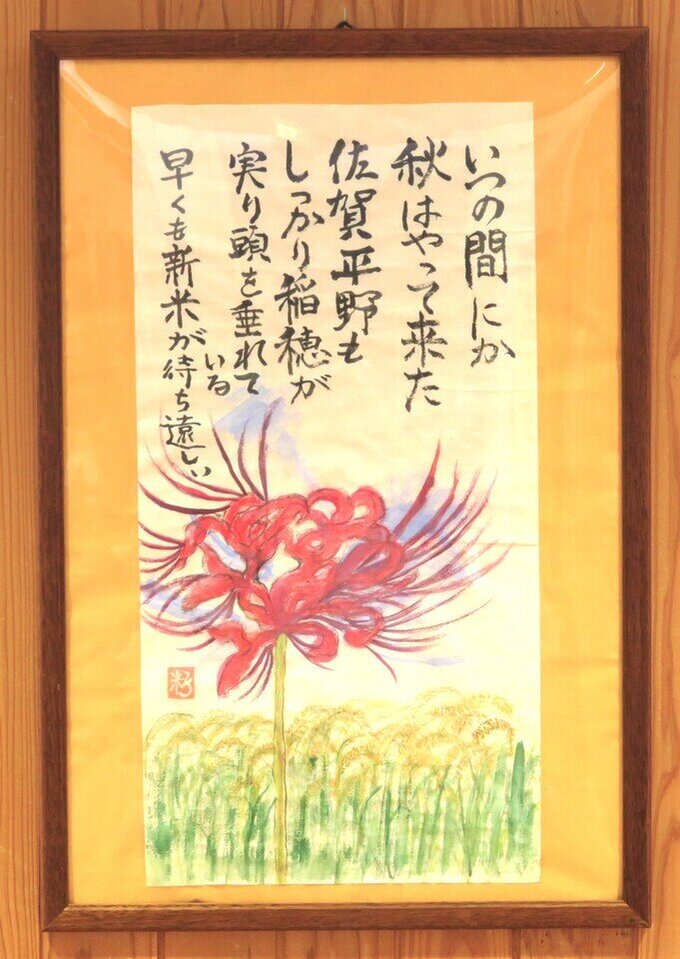 いつの間にか
秋はやって来た
佐賀平野も
しっかり稲穂が
実り頭を垂れて
いる
早くも新米が待ち遠しい